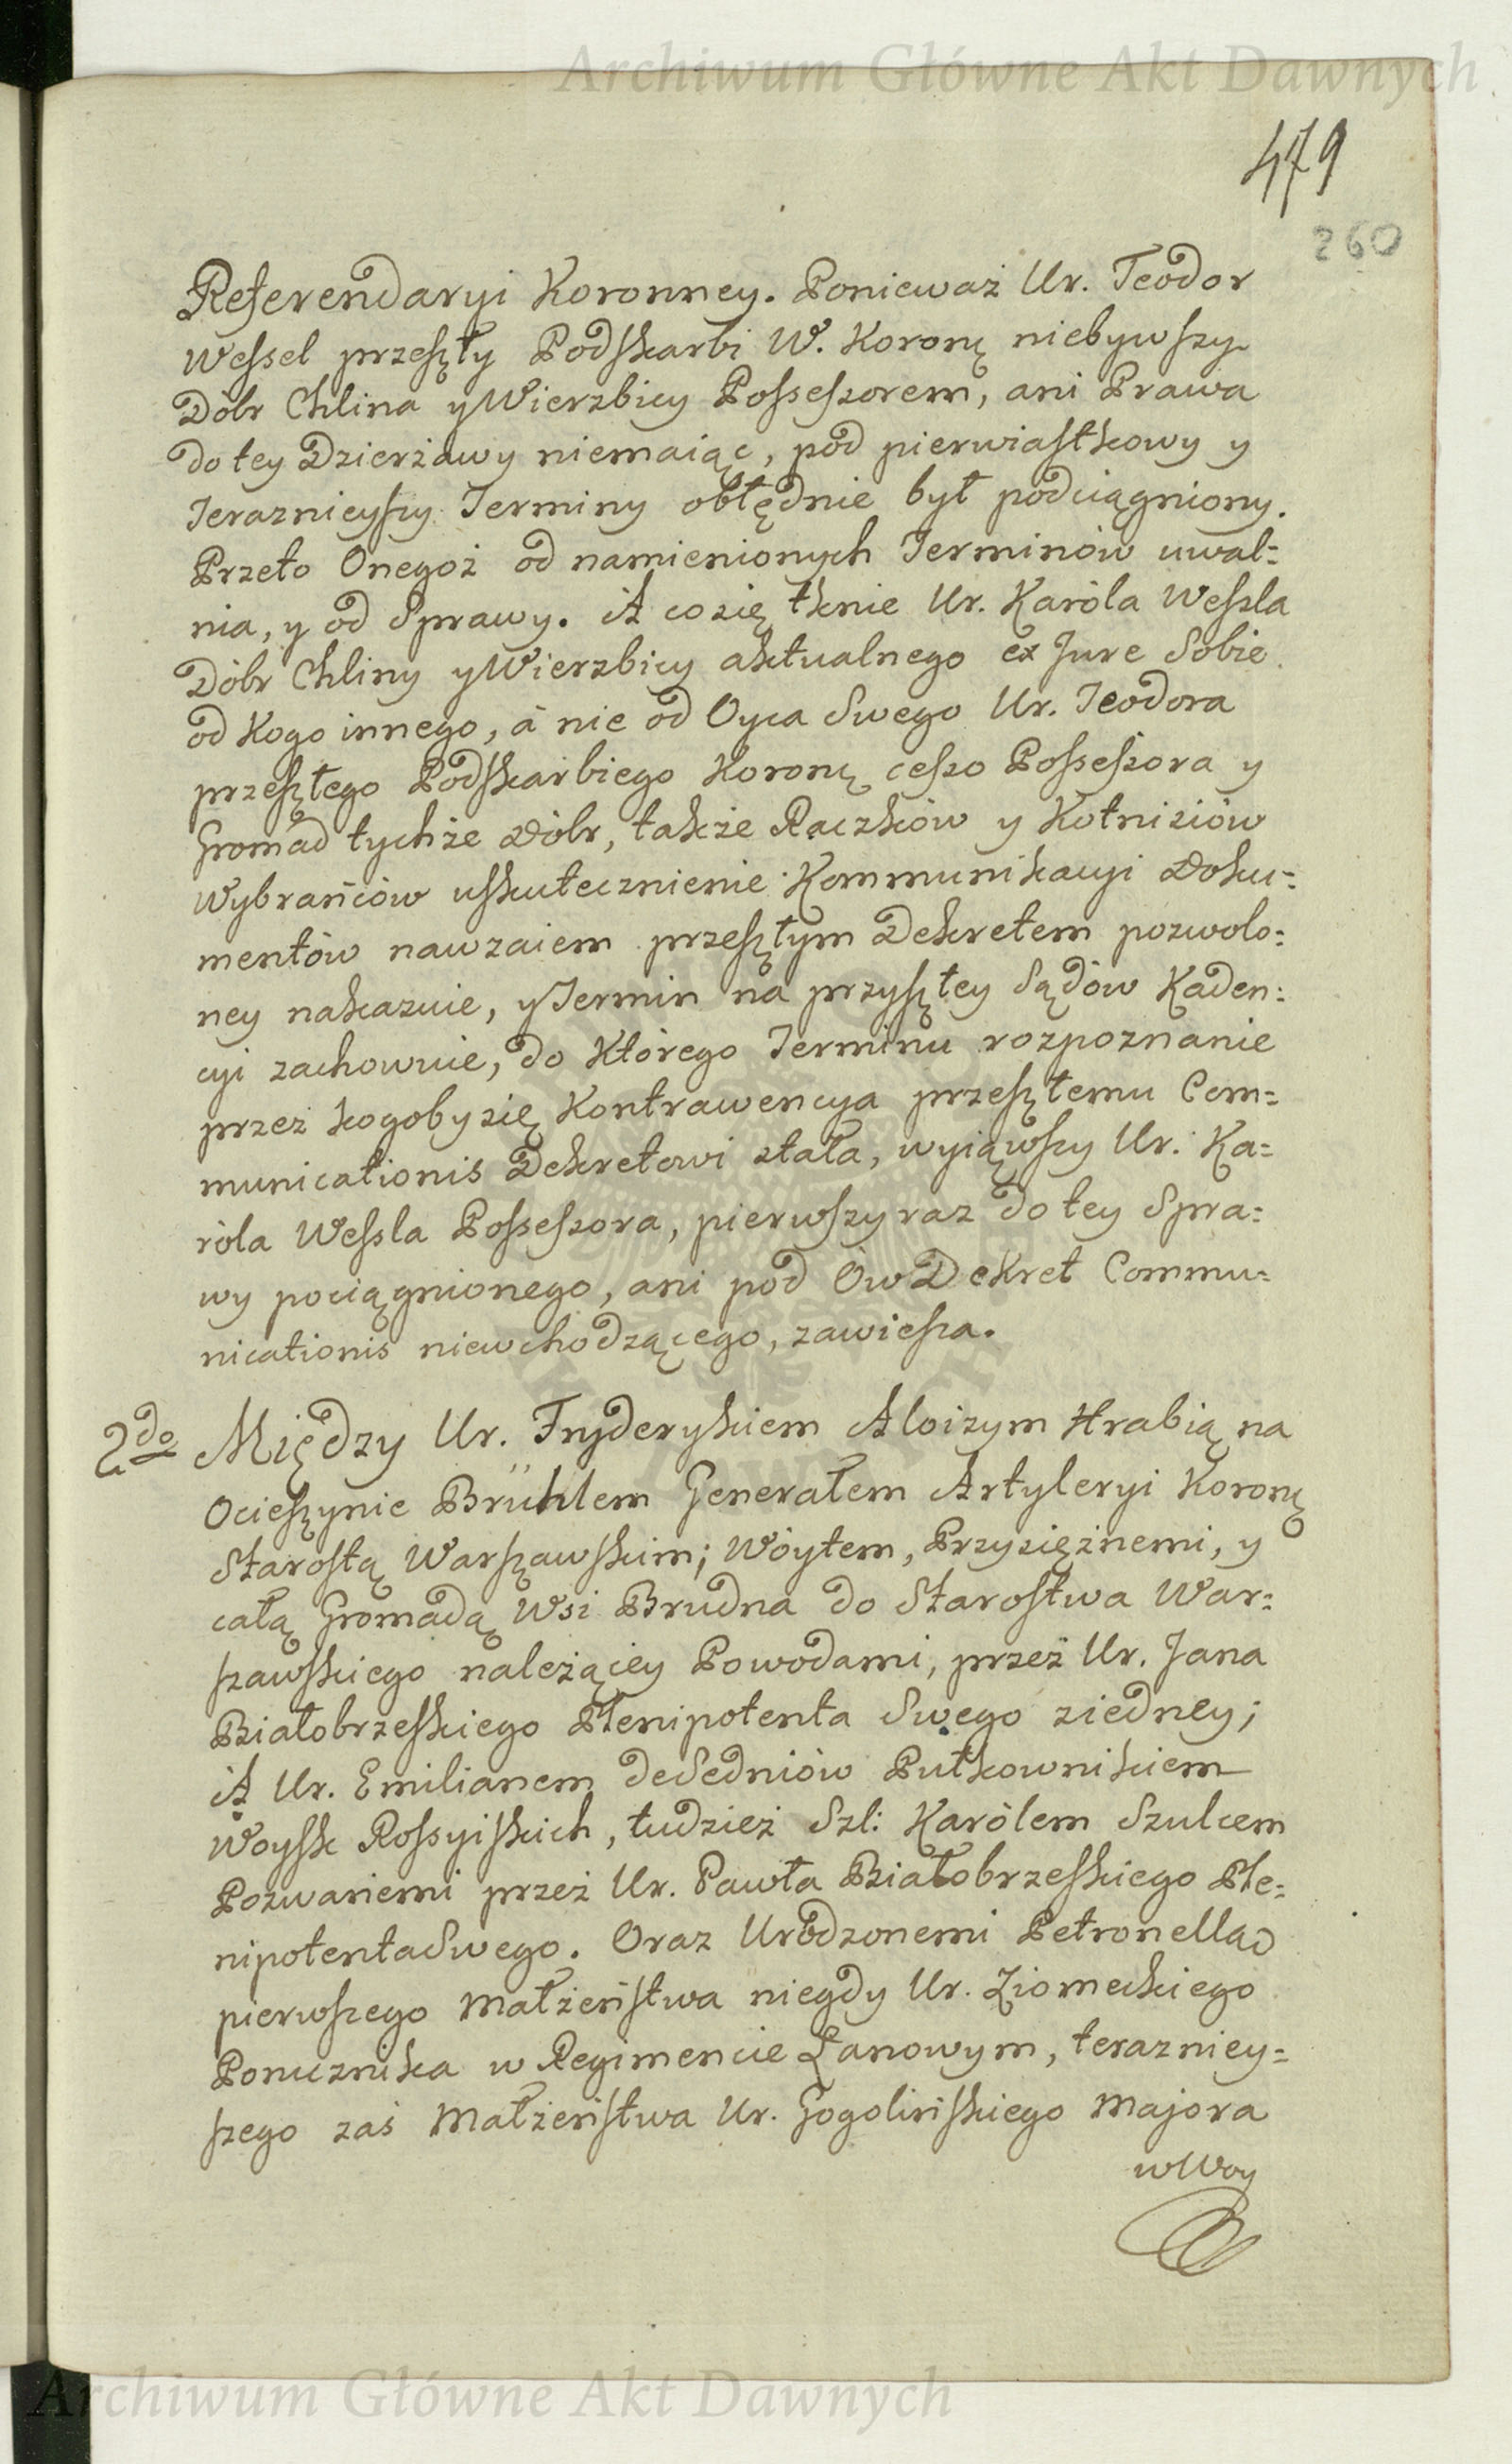 Archiwum Główne Akt Dawnych
479
260
Referendaryi Koronney. Ponieważ Ur. Teodor
Wessel przeszły Podskarbi W. Koronų niebywszy
Dóbr Chlina y Wierzbicy Possessorem, ani Prawa
do tey Dzierżawy niemaiąc, pod pierwiastkowy y
Teraznieyszy Terminy obłędnie był podciągniony.
Przeto Onegoż od namienionych Terminów uwal=
nia, y od Sprawy. A co się tknie Ur. Karóla Wessla
Dóbr Chliny y Wierzbicy aktualnego ex Jure Sobie
od Kogo innego, á nie od Oyca Swego Ur. Teodora
przeszłego Podskarbiego Koronų cesso Possessora y
Gromad tychże Dóbr, także Raczków y Kotnisiów
Wybrańców uskutecznienie Kommunikacyi Doku=
mentów nawzaiem przeszłym Dekretem pozwolo=
ney nakazuie, y Termin na przyszłey Sądów Kaden=
cyi zachowuie, do Którego Terminu rozpoznanie
przez kogoby się Kontrawencya przeszłemu Com=
municationis Dekretowi stała, wyiąwszy Ur. Ka=
róla Wessla Possessora, pierwszy raz do tey Spra=
wy pociągnionego, ani pod Ów Dekret Commu=
nicationis niewchodzącego, zawiesza.
2do Między Ur. Fryderykiem Aloizym Hrabią na
Ocieszynie Brühlem Generałem Artyleryi Koronų
Starostą Warszawskim; Wóytem, Przysiężnemi, y
całą Gromadą Wsi Brudna do Starostwa War=
szawskiego należącey Powodami, przez Ur. Jana
Białobrzeskiego Plenipotenta Swego ziedney;
A Ur. Emilianem deSedniów Pułkownikiem
Woysk Rossyiskich, tudzież Szl: Karólem Szulcem
Pozwanemi przez Ur. Pawła Białobrzeskiego Ple=
nipotenta Swego. Oraz Urodzonemi Petronellą
pierwszego Małżeństwa niegdy Ur. Ziomeckiego
Porucznika w Regimencie Łanowym, terazniey=
szego zaś Małżeństwa Ur. Gogolińskiego Majora
w Woy
Archiwum Główne Akt Dawnych